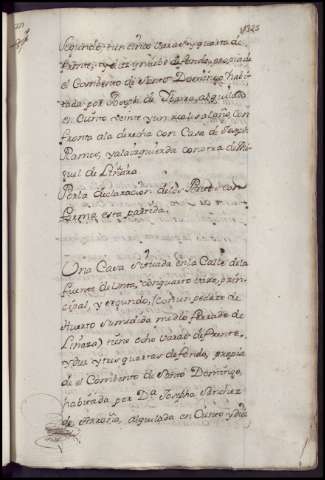 Segundo, tiene cinco varas y quarta de
frente, y diez y nuebe de fondo, propia de
el Combento de Santo Domingo, habi
tada por Joseph de Ybarra, alquilada
en Ciento veinte y un reales al año, con
fronta ala derecha con Casa de Joseph
Ramos, y ala izquierda con otra de Mi
guel de Liñara
Por la declaracion de los Peritos con
forme esta partida.
Una Casa Situada en la Calle de la
fuente de con quarto vajo, prin
cipal, y segundo, (con un pedazo de
Huerto Su medida medio de
Linaza) tiene ocho varas de frente,
y diez y tres quartas de fondo, propia
de el Combento de Santo Domingo,
habitada por D.ª Josepha Sanchez
de alquilada en Ciento y diez